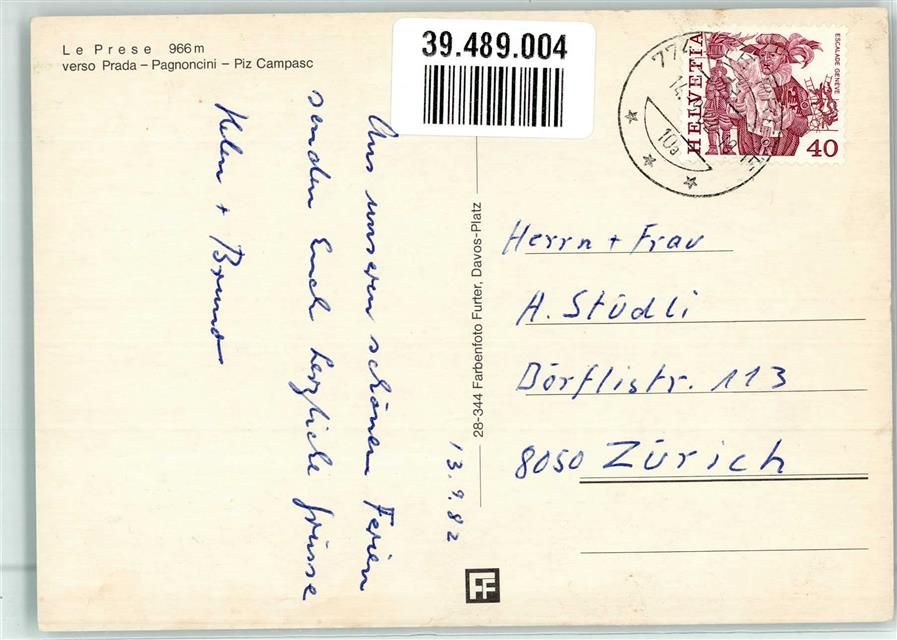 Le Prese 966 m
verso Prada – Pagnoncini – Piz Campasc
39.489.004
HELVETIA
ESCALADE GENÈVE
40
10a
Aus unseren schönen Ferien
senden Euch herzliche Grüsse
Helen + Bruno
13.9.82
28-344 Farbenfoto Furter, Davos-Platz
Herrn + Frau
A. Stüdli
Dörflistr. 113
8050 Zürich
FF